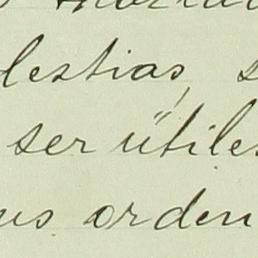 lestias, s
ser útiles
us orden